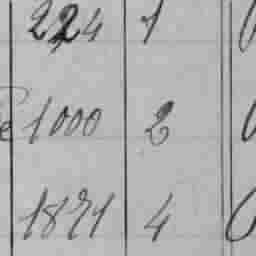 224 1
1000 2
1871 4